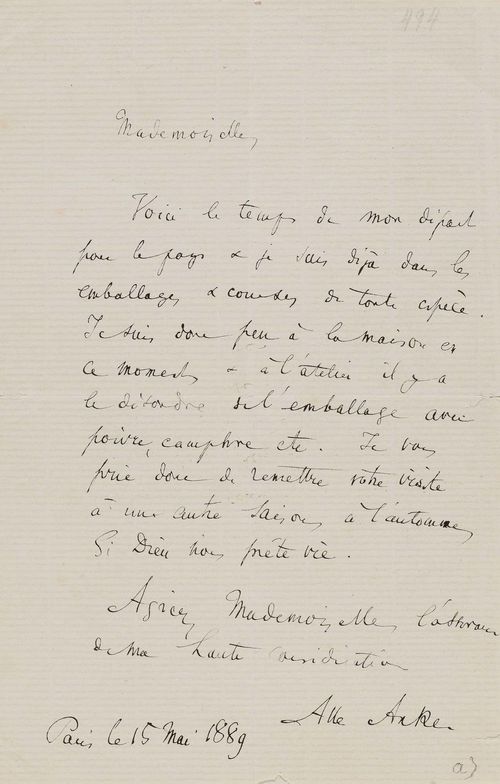 494
Mademoiselle,
Voici le temps de mon départ
pour le pays & je suis déjà dans les
emballages & courses de toute espèce.
Je suis donc peu à la maison en
ce moment & à l'atelier il y a
le désordre de l'emballage avec
poivre, camphre etc. Je vous
prie donc de remettre votre visite
à une autre saison, à l'automne,
Si Dieu nous prête vie.
Agréez, Mademoiselle, l'assurance
de ma haute
Paris le 15 Mai 1889
Anker
a)